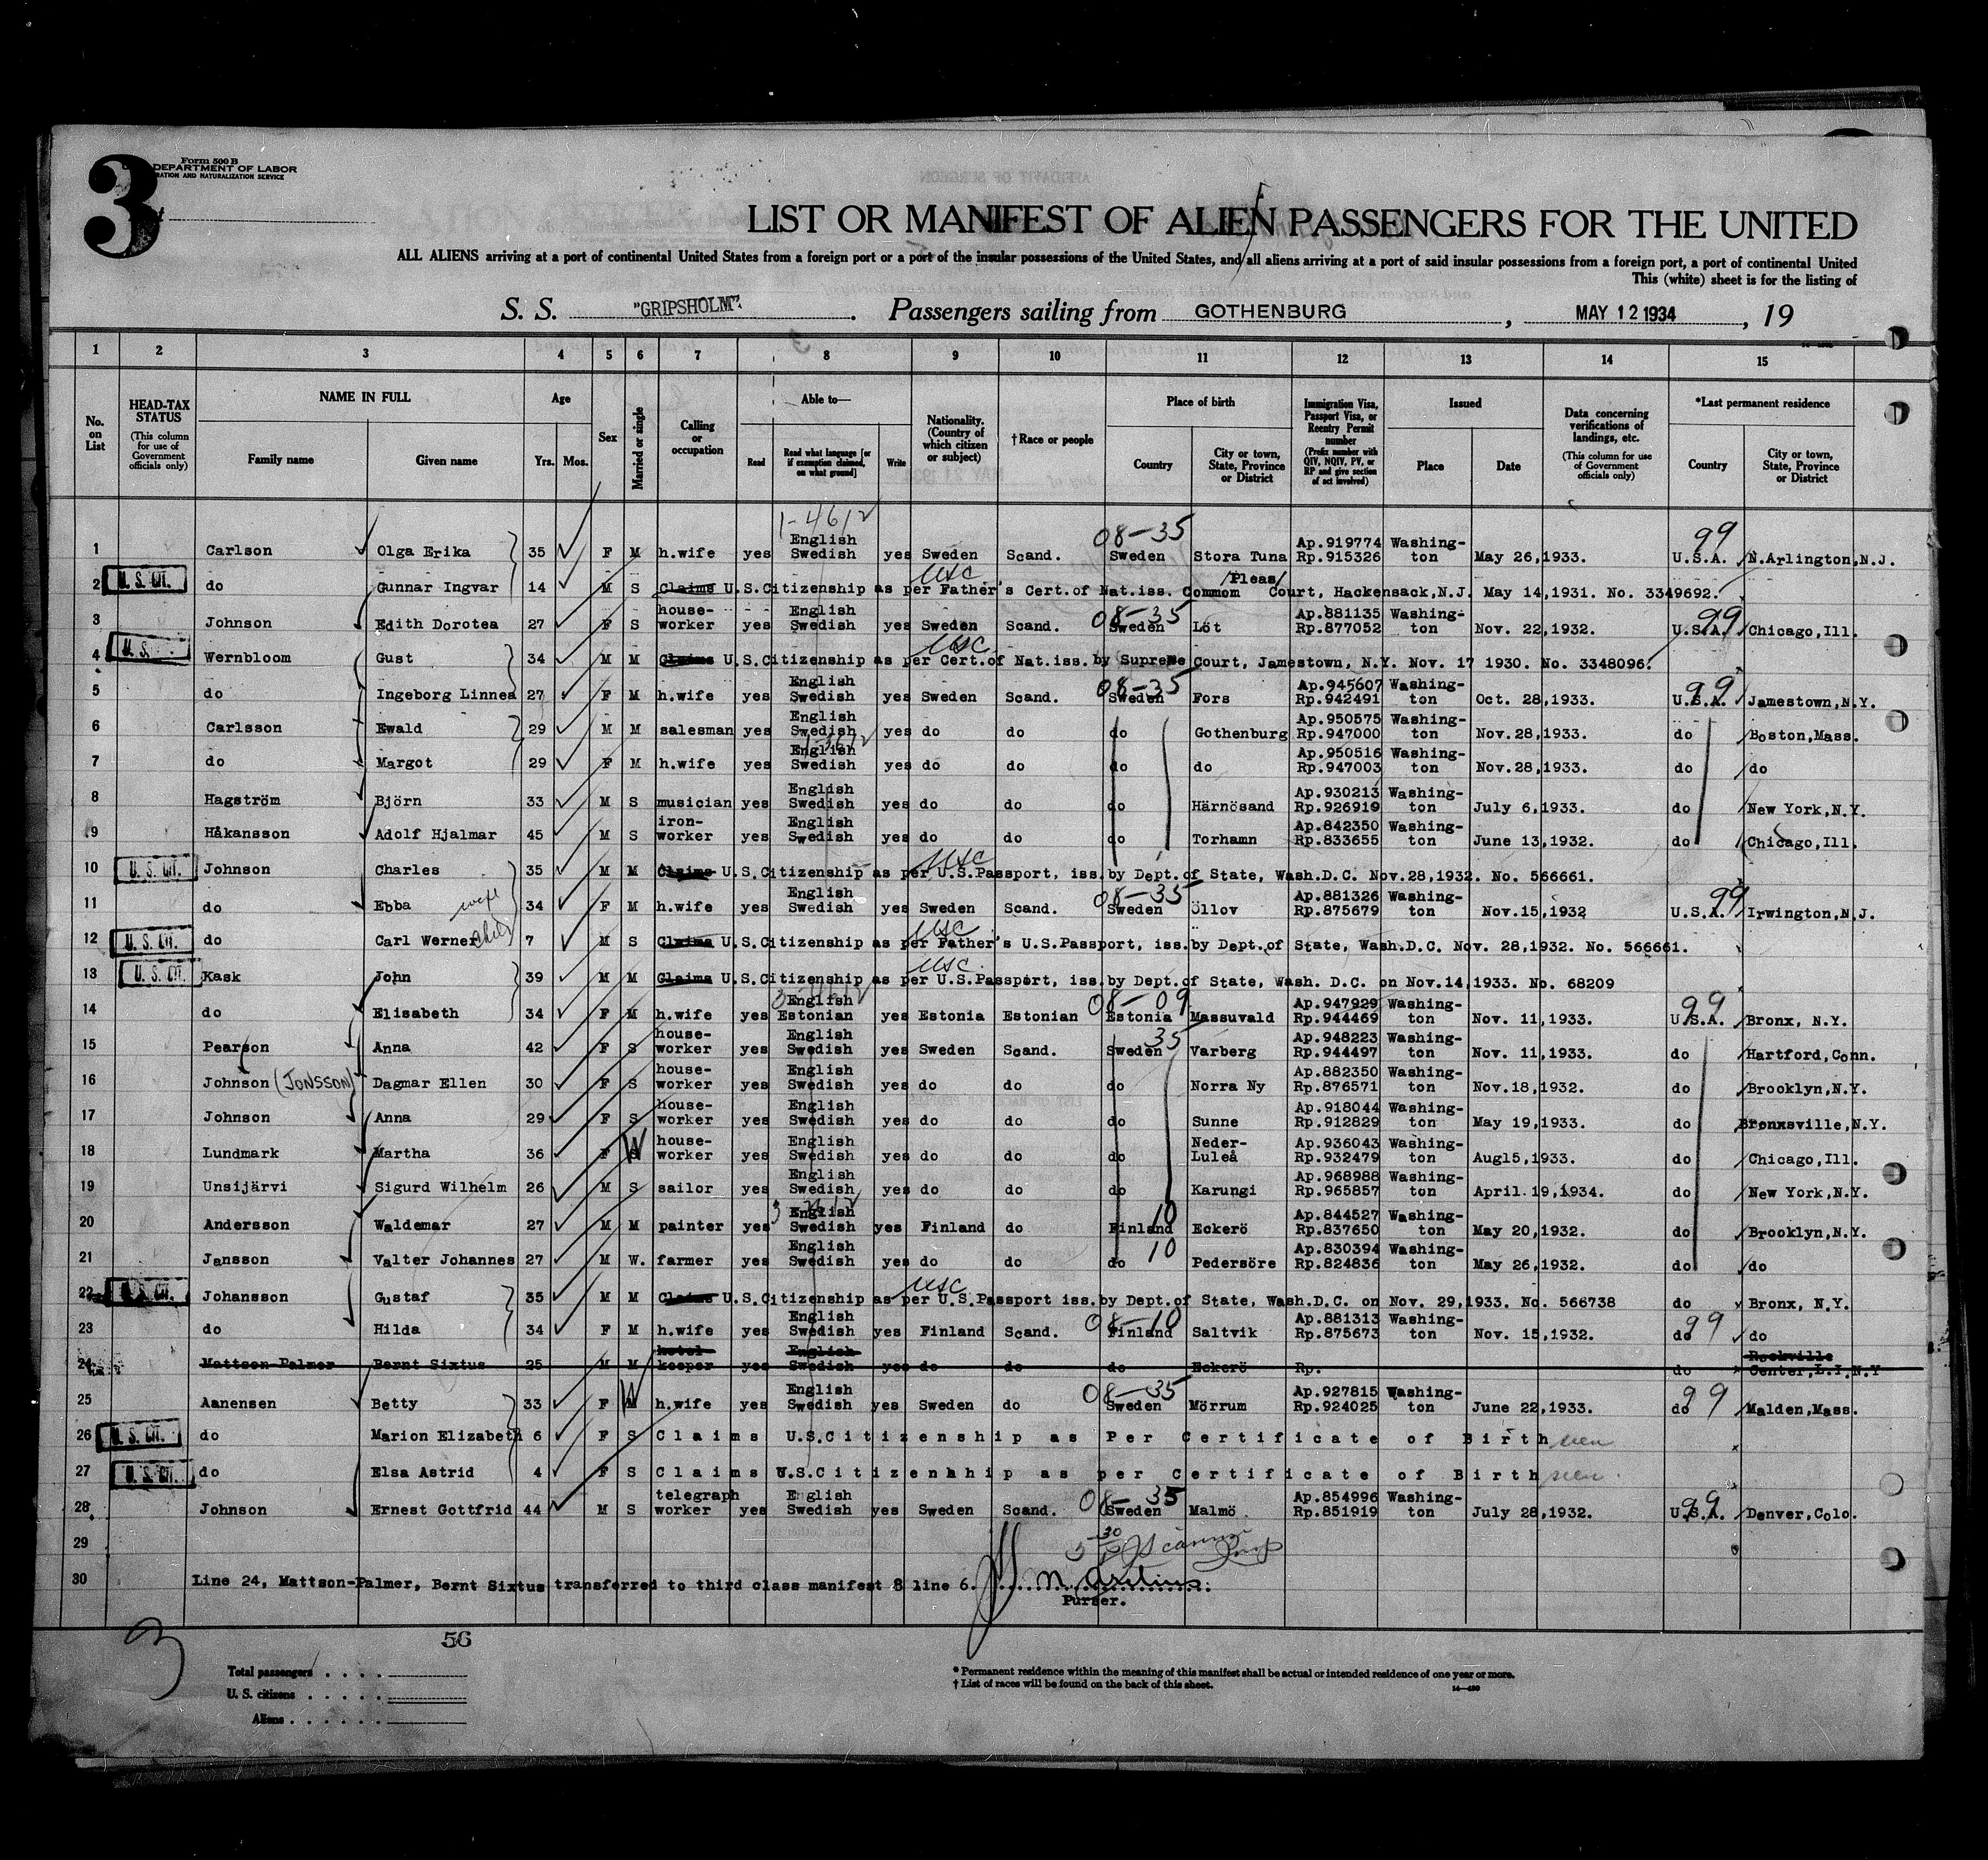 3
Form 500 B
DEPARTMENT OF LABOR
RATION AND NATURALIZATION SERVICE
LIST OR MANIFEST OF ALIEN PASSENGERS FOR THE UNITED
ALL ALIENS arriving at a port of continental United States from a foreign port or a port of the insular possessions of the United States, and all aliens arriving at a port of said insular possessions from a foreign port, a port of continental United
This (white) sheet is for the listing of
S. S. "GRIPSHOLM". Passengers sailing from GOTHENBURG , MAY 12 1934 , 19
1 2 3 4 5 6 7 8 9 10 11 12 13 14 15
No. on List
HEAD-TAX STATUS (This column for use of Government officials only)
NAME IN FULL Family name Given name
Age Yrs. Mos.
Sex
Married or single
Calling or occupation
Able to— Read Read what language [or if exemption claimed, on what ground] Write
Nationality. (Country of which citizen or subject)
†Race or people
Place of birth Country City or town, State, Province or District
Immigration Visa, Passport Visa, or Reentry Permit number (Prefix number with QIV, NQIV, PV, or RP and give section of act involved)
Issued Place Date
Data concerning verifications of landings, etc. (This column for use of Government officials only)
*Last permanent residence Country City or town, State, Province or District
1 Carlson Olga Erika 35 F M h.wife yes English Swedish yes Sweden Scand. 08-35 Sweden Stora Tuna Ap.919774 Rp.915326 Washington May 26,1933. 99 U.S.A. N.Arlington,N.J.
2 U.S. CIT. do Gunnar Ingvar 14 M S Claims U.S.Citizenship as per Father's Cert.of Nat.iss. Commom /Pleas/ Court, Hackensack,N.J. May 14,1931. No. 3349692. USC
3 Johnson Edith Dorotea 27 F S house-worker yes English Swedish yes Sweden Scand. 08-35 Sweden Löt Ap.881135 Rp.877052 Washing-ton Nov. 22,1932. 99 U.S.A. Chicago,Ill.
4 U.S. Wernbloom Gust 34 M M Claims U.S.Citizenship as per Cert.of Nat.iss. by Supreme Court, Jamestown, N.Y. Nov. 17 1930. No. 3348096. USC
5 do Ingeborg Linnea 27 F M h.wife yes English Swedish yes Sweden Scand. 08-35 Sweden Fors Ap.945607 Rp.942491 Washing-ton Oct. 28,1933. 99 U.S.A. Jamestown,N.Y.
6 Carlsson Ewald 29 M M salesman yes English Swedish yes do do do Gothenburg Ap.950575 Rp.947000 Washing-ton Nov.28,1933. do Boston,Mass.
7 do Margot 29 F M h.wife yes English Swedish yes do do do do Ap.950516 Rp.947003 Washing-ton Nov.28,1933. do do
8 Hagström Björn 33 M S musician yes English Swedish yes do do do Härnösand Ap.930213 Rp.926919 Washing-ton July 6,1933. do New York,N.Y.
9 Håkansson Adolf Hjalmar 45 M S iron-worker yes English Swedish yes do do do Torhamn Ap.842350 Rp.833655 Washing-ton June 13,1932. do Chicago,Ill.
10 U.S. CIT. Johnson Charles 35 M M Claims U.S.Citizenship as per U.S.Passport, iss.by Dept.of State, Wash.D.C. Nov.28,1932. No. 566661. USC
11 do Ebba wife 34 F M h.wife yes English Swedish yes Sweden Scand. 08-35 Sweden Öllov Ap.881326 Rp.875679 Washing-ton Nov.15,1932 99 U.S.A. Irwington,N.J.
12 U.S. CIT. do Carl Werner child 7 M S Claims U.S.Citizenship as per Father's U.S.Passport, iss.by Dept.of State, Wash.D.C. Nov. 28,1932. No. 566661. USC
13 U.S. CIT. Kask John 39 M M Claims U.S.Citizenship as per U.S.Passport, iss.by Dept.of State, Wash. D.C. on Nov.14,1933. No. 68209 USC
14 do Elisabeth 34 F M h.wife yes English Estonian yes Estonia Estonian 08-09 Estonia Massuvald Ap.947929 Rp.944469 Washing-ton Nov. 11,1933. 99 U.S.A. Bronx, N.Y.
15 Pearson Anna 42 F S house-worker yes English Swedish yes Sweden Scand. 35 Sweden Varberg Ap.948223 Rp.944497 Washing-ton Nov. 11,1933. do Hartford,Conn.
16 Johnson (JONSSON) Dagmar Ellen 30 F S house-worker yes English Swedish yes do do do Norra Ny Ap.882350 Rp.876571 Washing-ton Nov.18,1932. do Brooklyn,N.Y.
17 Johnson Anna 29 F S house-worker yes English Swedish yes do do do Sunne Ap.918044 Rp.912829 Washing-ton May 19,1933. do Bronxsville,N.Y.
18 Lundmark Martha 36 F W house-worker yes English Swedish yes do do do Neder-Luleå Ap.936043 Rp.932479 Washing-ton Aug15,1933. do Chicago,Ill.
19 Unsijärvi Sigurd Wilhelm 26 M S sailor yes English Swedish yes do do do Karungi Ap.968988 Rp.965857 Washing-ton April 19,1934. do New York,N.Y.
20 Andersson Waldemar 27 M M painter yes English Swedish yes Finland do 10 Finland Eckerö Ap.844527 Rp.837650 Washing-ton May 20,1932. do Brooklyn,N.Y.
21 Jansson Valter Johannes 27 M W. farmer yes English Swedish yes do do 10 do Pedersöre Ap.830394 Rp.824836 Washing-ton May 26,1932. do do
22 U.S. CIT. Johansson Gustaf 35 M M Claims U.S.Citizenship as per U.S.Passport iss.by Dept.of State, Wash.D.C. on Nov. 29,1933. No. 566738 do Bronx, N.Y. USC
23 do Hilda 34 F M h.wife yes English Swedish yes Finland Scand. 08-10 Finland Saltvik Ap.881313 Rp.875673 Washing-ton Nov. 15,1932. 99 do do
24 Mattson-Palmer Bernt Sixtus 25 M M hotel-keeper yes English Swedish yes do do do Eckerö Rp. do Rockville Center,L.I.N.Y
25 Aanensen Betty 33 F W h.wife yes English Swedish yes Sweden do 08-35 Sweden Mörrum Ap.927815 Rp.924025 Washing-ton June 22,1933. 99 do Malden,Mass.
26 U.S. CIT. do Marion Elizabeth 6 F S Claims U.S.Citizenship as Per Certificate of Birth seen
27 U.S. CIT. do Elsa Astrid 4 F S Claims U.S.Citizenhhip as per Certificate of Birth seen
28 Johnson Ernest Gottfrid 44 M S telegraph worker yes English Swedish yes Sweden Scand. 08-35 Sweden Malmö Ap.854996 Rp.851919 Washing-ton July 28,1932. 99 U.S.A. Denver,Colo.
29
30 Line 24, Mattson-Palmer, Bernt Sixtus transferred to third class manifest 8 line 6.
Purser.
3
56
Total passengers
U. S. citizens
Aliens
* Permanent residence within the meaning of this manifest shall be actual or intended residence of one year or more.
† List of races will be found on the back of this sheet.